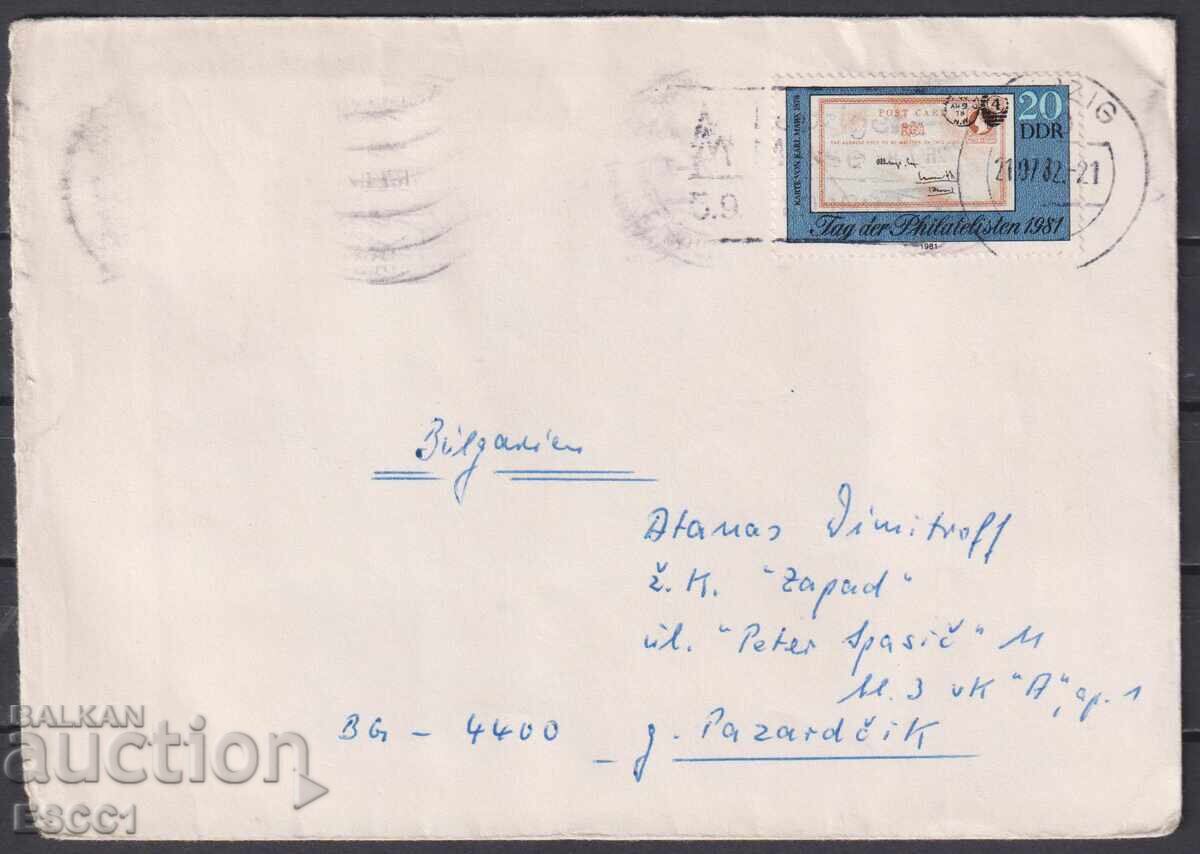 20
DDR
KARTE VON KARL MARX 1878
POST CARD
Tag der Philatelisten 1981
1981
ZIG
21.07.82.-21
5.9.
Bulgarien
Atanas Dimitroff
ž.K. "Zapad"
ul. "Peter Spasič" 11
bl. 3 vK "A", ap. 1
BG - 4400 g. Pazardčik
BALKAN
auction
ESCC1